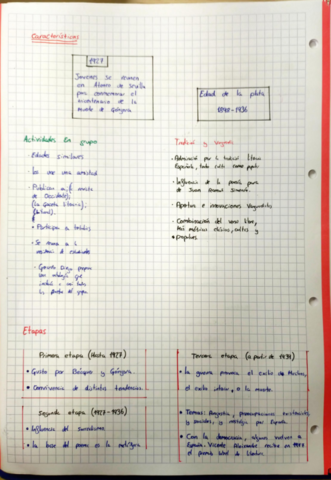 Características
1927
Jóvenes se reunen
en Ateneo de Sevilla
para conmemorar el
bicentenario de la
muerte de Góngora
Edad de la plata
1898-1936
Actividades En grupo
• Edades similares
• Les une una amistad
• Publican
de Occidente),
(La Gaceta literaria);
(Litoral).
• Participan a
• Se reunen en la
residencia de estudiantes
• Gerardo Diego propone
una antología que
incluía a
los poetas del grupo
Tradición y vanguardia
• Admiración por la tradición lírica
Española, tanto culta como popular
• Influencia de la poesía pura
de Juan Ramón Jiménez.
• Apertura a innovaciones Vanguardistas
• Combinación del verso libre,
con métricas clásicas, cultas y
populares
Etapas
Primera etapa (Hasta 1927)
• Gusto por Bécquer y Góngora.
• Convivencia de distintas tendencias.
Segunda etapa (1927-1936)
• Influencia del surrealismo
• La base del poema es la metáfora
Tercera etapa (a partir de 1939)
• La guerra provoca el exilio de muchos,
el exilio interior, o la muerte.
• Temas: Angustia, preocupaciones existenciales
y sociales, y nostalgia por España.
• Con la democracia, algunos vuelven a
España. Vicente Aleixandre recibe en 1977
el premio Nobel de Literatura